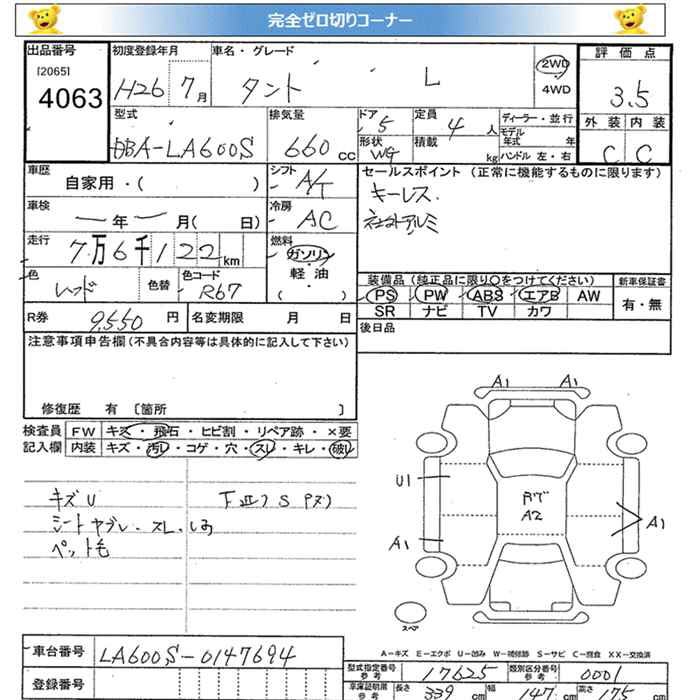 完全ゼロ切りコーナー
出品番号 初度登録年月 車名・グレード 評価点
[2065] 4063
H26 7月 タント L 2WD 4WD 3.5
型式 排気量 ドア 5 定員 4人 ディーラー・並行 外装 内装
DBA-LA600S 660cc 形状 WG 積載 kg モデル年式 年 C C
ハンドル 左・右
車歴 自家用・( ) シフト A/T セールスポイント(正常に機能するものに限ります)
キーレス.
車検 ー年ー月( 日) 冷房 AC
走行 7万6千122km 燃料 ガソリン 軽油 ( ・ )
色 レッド 色替 色コード R67
装備品(純正品に限り○をつけてください) 新車保証書
PS PW ABS エアB AW 有・無
SR ナビ TV カワ
R券 9,550円 名変期限 月 日
後日品
注意事項申告欄(不具合内容等は具体的に記入して下さい)
修復歴 有 [箇所 ]
検査員 FW キズ・飛石・ヒビ割・リペア跡・×要
記入欄 内装 キズ・汚レ・コゲ・穴・スレ・キレ・破レ
キズU
シートヤブレ.スレ.しみ
ペット毛
A1 A1
U1
A1
A2
A1
スペア
A-キズ E-エクボ U-凹み W-補修跡 S-サビ C-腐食 XX-交換済
車台番号 LA600S-0147694
登録番号
型式指定番号 参考 17625 類別区分番号 参考 0001
車庫証明用 参考 長さ 339cm 幅 147cm 高さ 175cm